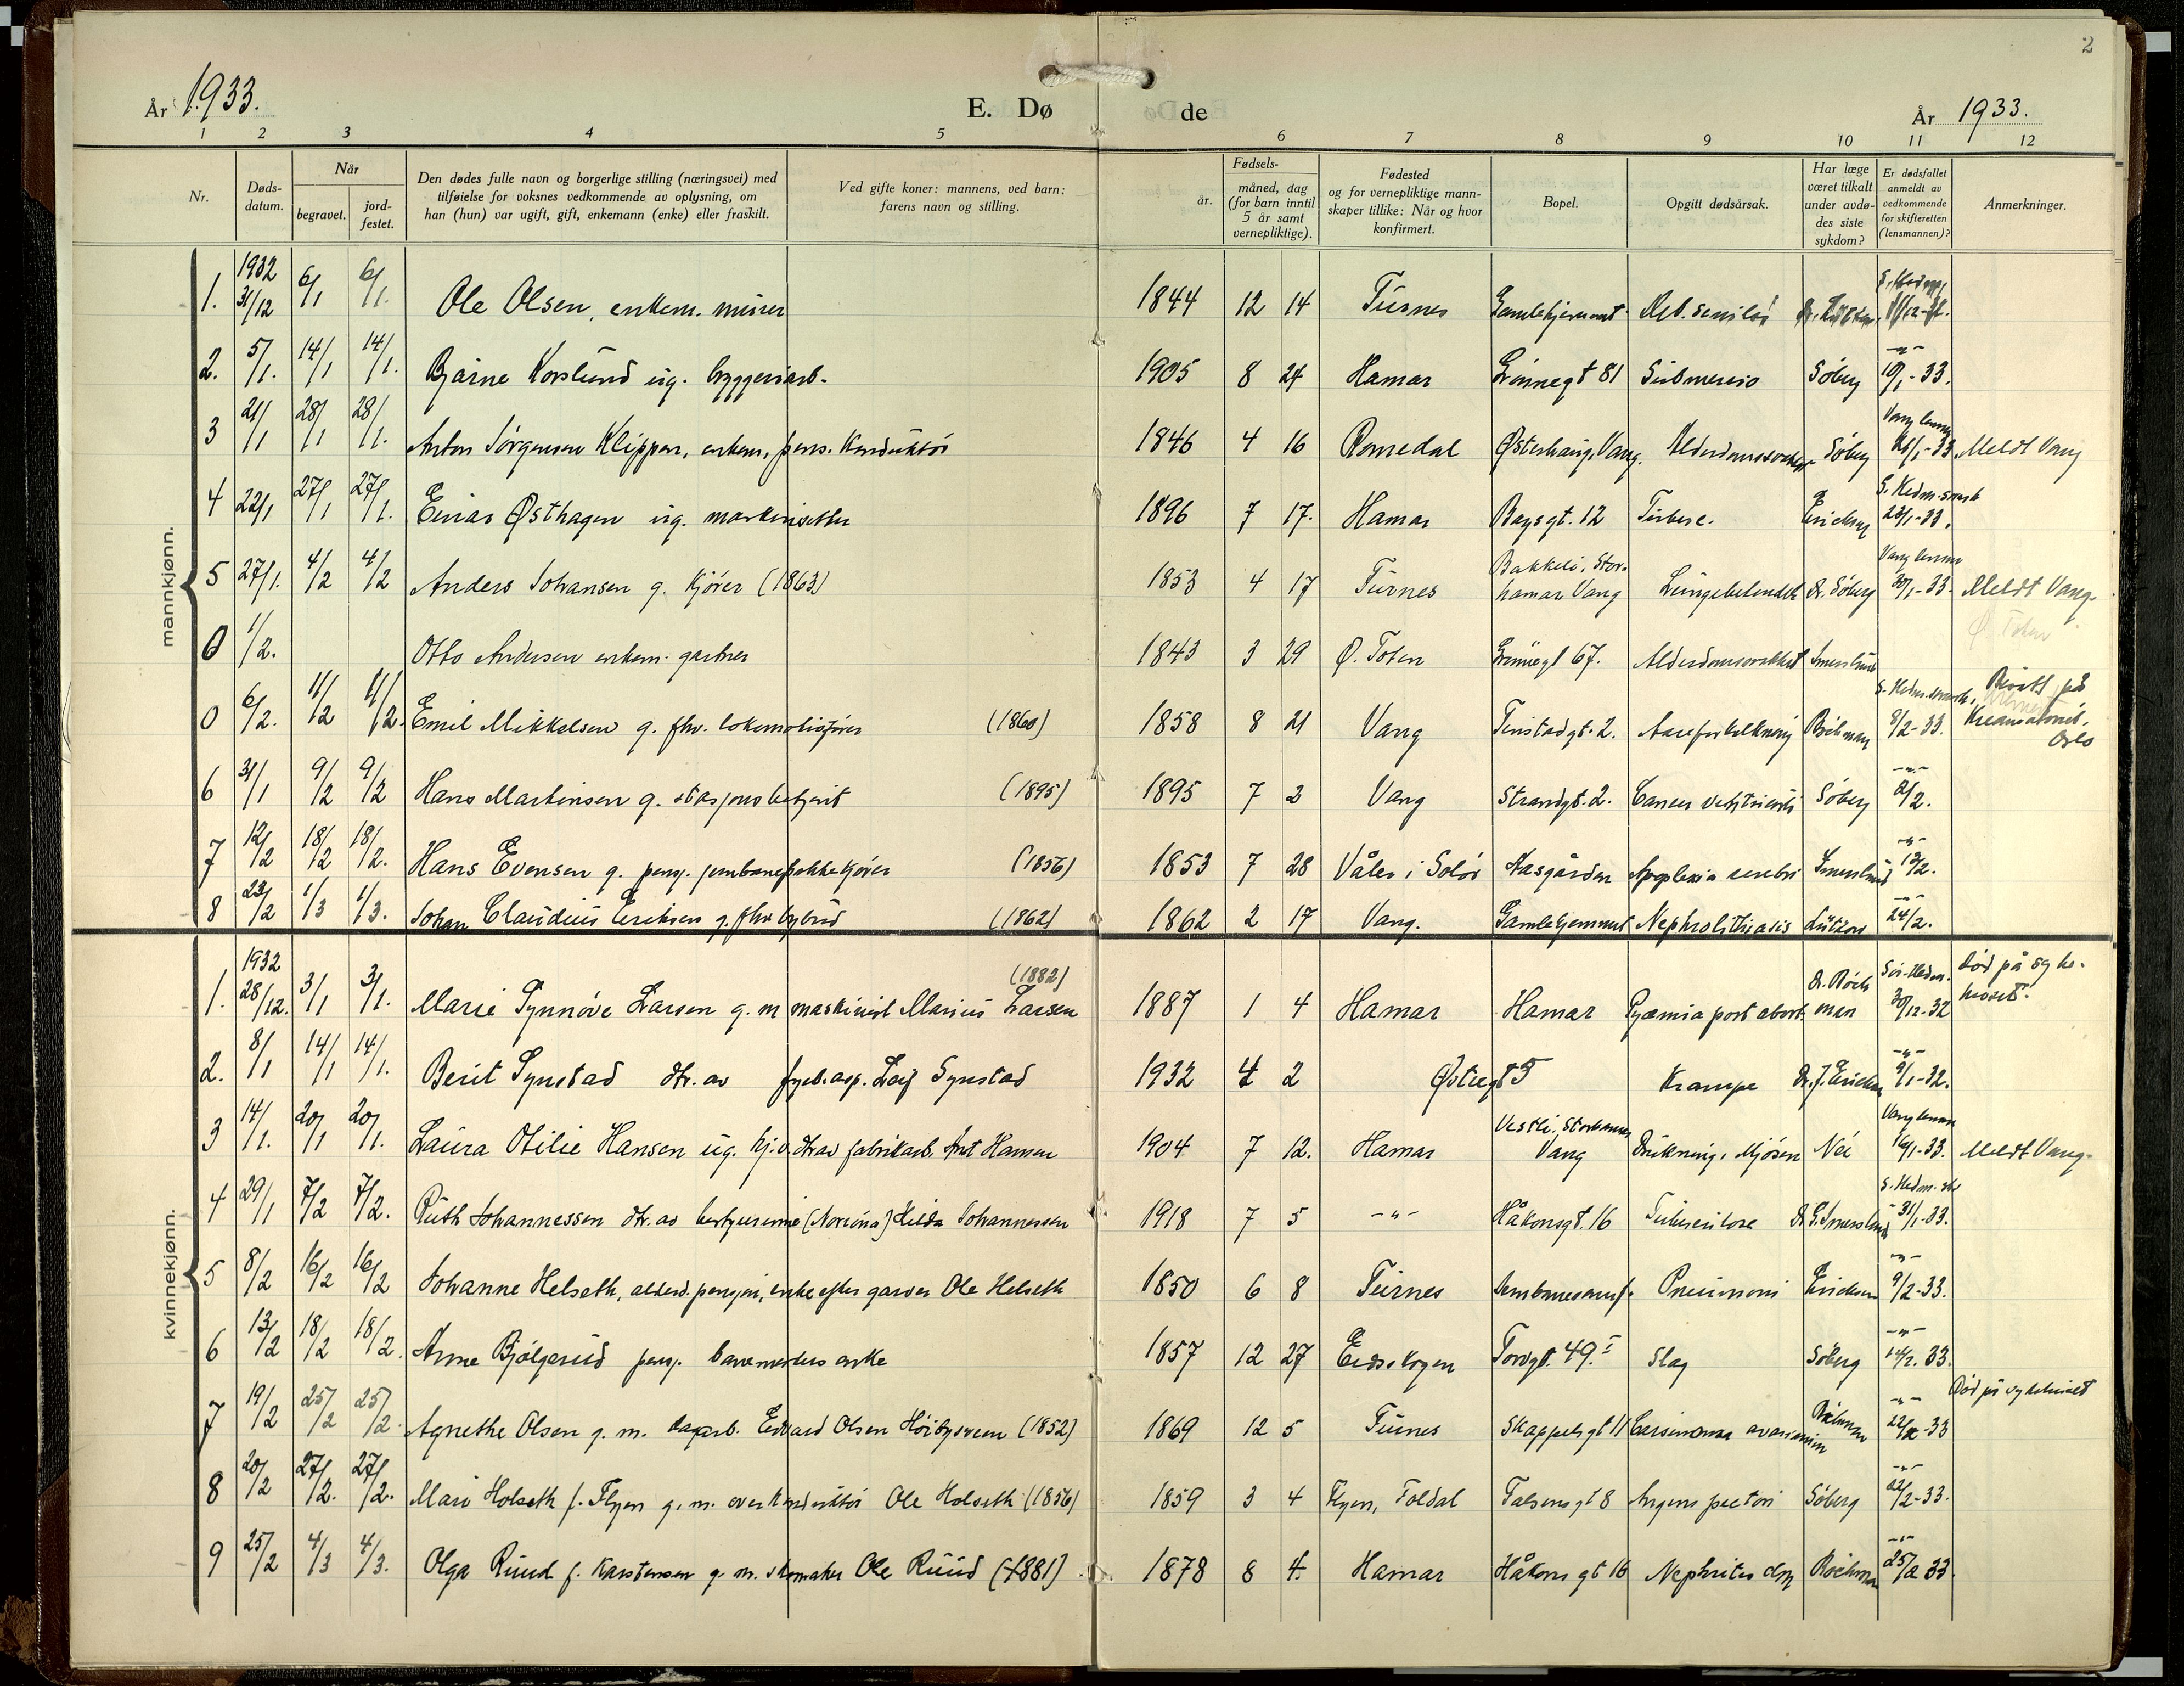 2
År 1933.
E. Dø de
År 1933.
1 2 3 4 5 6 7 8 9 10 11 12
Nr.
Døds-datum.
Når
begravet.
jord-festet.
Den dødes fulle navn og borgerlige stilling (næringsvei) med
tilføielse for voksnes vedkommende av oplysning, om
han (hun) var ugift, gift, enkemann (enke) eller fraskilt.
Ved gifte koner: mannens, ved barn:
farens navn og stilling.
Fødsels-
år.
måned, dag
(for barn inntil
5 år samt
vernepliktige).
Fødested
og for vernepliktige mann-
skaper tillike: Når og hvor
konfirmert.
Bopel.
Opgitt dødsårsak.
Har læge
været tilkalt
under avdø-
des siste
sykdom?
Er dødsfallet
anmeldt av
vedkommende
for skifteretten
(lensmannen)?
Anmerkninger.
mannkjønn.
1. 1932 31/12 6/1 6/1. Ole Olsen, enkem. murer 1844 12 14 Furnes Gamlehjemmet
2. 5/1. 14/1 14/1. Bjarne Korslund ug. byggeriarb. 1905 8 24 Hamar Grønnegt 81 Submersio Søberg -"- 10/1-33.
3 21/1 28/1 28/1. Anton Jørgensen Klippen, enkem, pens. Konduktør 1846 4 16 Romedal Østerhaug, Vang. Søberg Vang lensm. /1-33. Meldt Vang
4 22/1 27/1 27/1. Einar Østhagen ug. maskinsetter 1896 7 17. Hamar Baysgt. 12 Tuberc. Erichsen 23/1-33.
5 27/1. 4/2 4/2 Anders Johansen g. kjører (1863) 1853 4 17 Furnes Bakkeli, Stor-hamar Vang Lungebetendelse Dr. Søberg Vang lensm 30/1-33. Meldt Vang.
0 1/2. Otto Andersen enkem. gartner 1843 3 29 Ø. Toten Grønnegt 67. Ø. Toten
0 6/2. 11/2 11/2. Emil Mikkelsen g. fhv. lokomotivfører (1860) 1858 8 21 Vang Finstadgt. 2. Aareforkalkning 8/2-33. Bisatt på Krematoriet. Oslo
6 31/1 9/2 9/2 Hans Martinsen g. stasjonsbetjent (1895) 1895 7 2 Vang Strandgt. 2. Cancer Søberg -"- 2/2.
7 12/2 18/2 18/2. Hans Evensen g. pens. jernbanepakkekjører (1856) 1853 7 28 Våler i Solør Aasgården Apoplexia cerebri Smerslund -"- 13/2.
8 23/2 1/3 1/3. Johan Claudius Eriksen g. fhv. bybud (1862) 1862 2 17 Vang. Gamlehjemmet Nephrolithiasis Lützow -"- 24/2.
kvinnekjønn.
1. 1932 28/12. 3/1 3/1. Marie Synnøve Larsen g. m maskinist Marius Larsen (1882) 1887 1 4 Hamar Hamar Pyæmia post abort. 30/12-32 død på sykehuset.
2. 8/1 14/1 14/1. Berit Synstad dtr. av fyrb. asp. Leif Synstad 1932 4 2 Østregt 5 Krampe Dr. J. Erichsen -"- 9/1-32.
3 14/1. 20/1 20/1. Laura Otilie Hansen ug. hj.v. dtr av fabrikarb. Ant Hansen 1904 7 12. Hamar Vestli, Storhamar Vang Drukning, Mjøsen Nei Vang lensm 16/1-33. Meldt Vang.
4 29/1 7/2 7/2. Ruth Johannessen dtr. av bestyrerinne (Norröna) Hilda Johannessen 1918 7 5 -"- Håkonsgt. 16 Tuberculose Dr. G. Smerslund S. Hedm. 31/1-33.
5 8/2 16/2 16/2 Johanne Helseth, alderd. pensjon, enke efter garver Ole Helseth 1850 6 8 Furnes Pneumoni Erichsen -"- 9/2-33.
6 13/2 18/2 18/2. Anne Bjølgerud pens. banemesters enke 1857 12 27 Eidskogen Torvgt. 49. I Slag Søberg -"- 14/2. 33.
7 19/2 25/2 25/2. Agnethe Olsen g. m. dagarb. Edvard Olsen Høibysveen (1852) 1869 12 5 Furnes Skappelsgt 11 Carsinoma ovariarum -"- 22/2-33 Død på sykehuset
8 20/2 27/2. 27/2. Mari Holseth f. Flyen g. m. overkonduktør Ole Holseth (1856) 1859 3 4 Flyen, Foldal Falsensgt 8 Angina pectori Søberg -"- 22/2-33.
9 25/2 4/3 4/3. Olga Ruud f. Karstensen g. m. skomaker Ole Ruud (1881) 1878 8 4. Hamar Håkonsgt 16 Nephritis -"- 25/2 33.